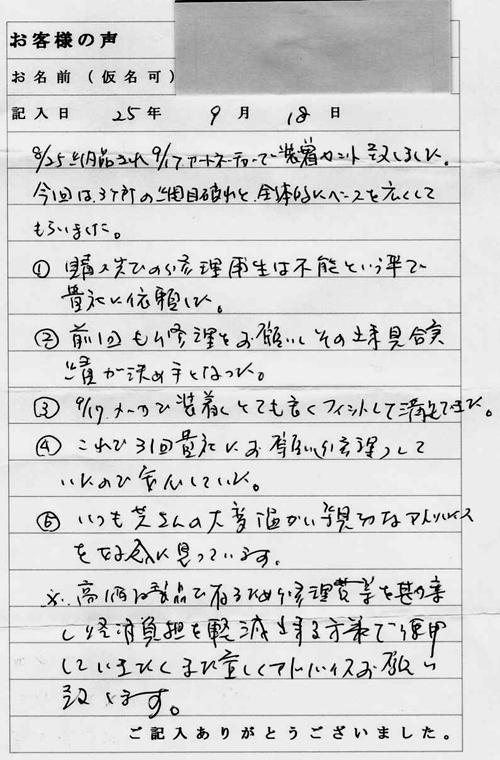 お客様の声
お名前（仮名可）
記入日 25年 9月 18日
8/25に納品され9/17 で装着 致しました。
今回は、3ケ所の網目破れと、全体的にベースを広くして
もらいました。
① 購入先での修理再生は不能という事で
貴社に依頼した。
② 前回も修理をお願いしその出来具合実
績が決め手となった。
③ 9/17. で装着しとても良くフィットして満足でした。
④ これで3回貴社にお願い(修理)して
いたので安心していた。
⑤ いつも さんの大変温かい親切なアドバイス
を好感に思っています。
※ 高価な製品で有るため修理費等を
し経済負担を軽減出来る方策で使用
していきたく 宜しくアドバイスお願い
致します。
ご記入ありがとうございました。